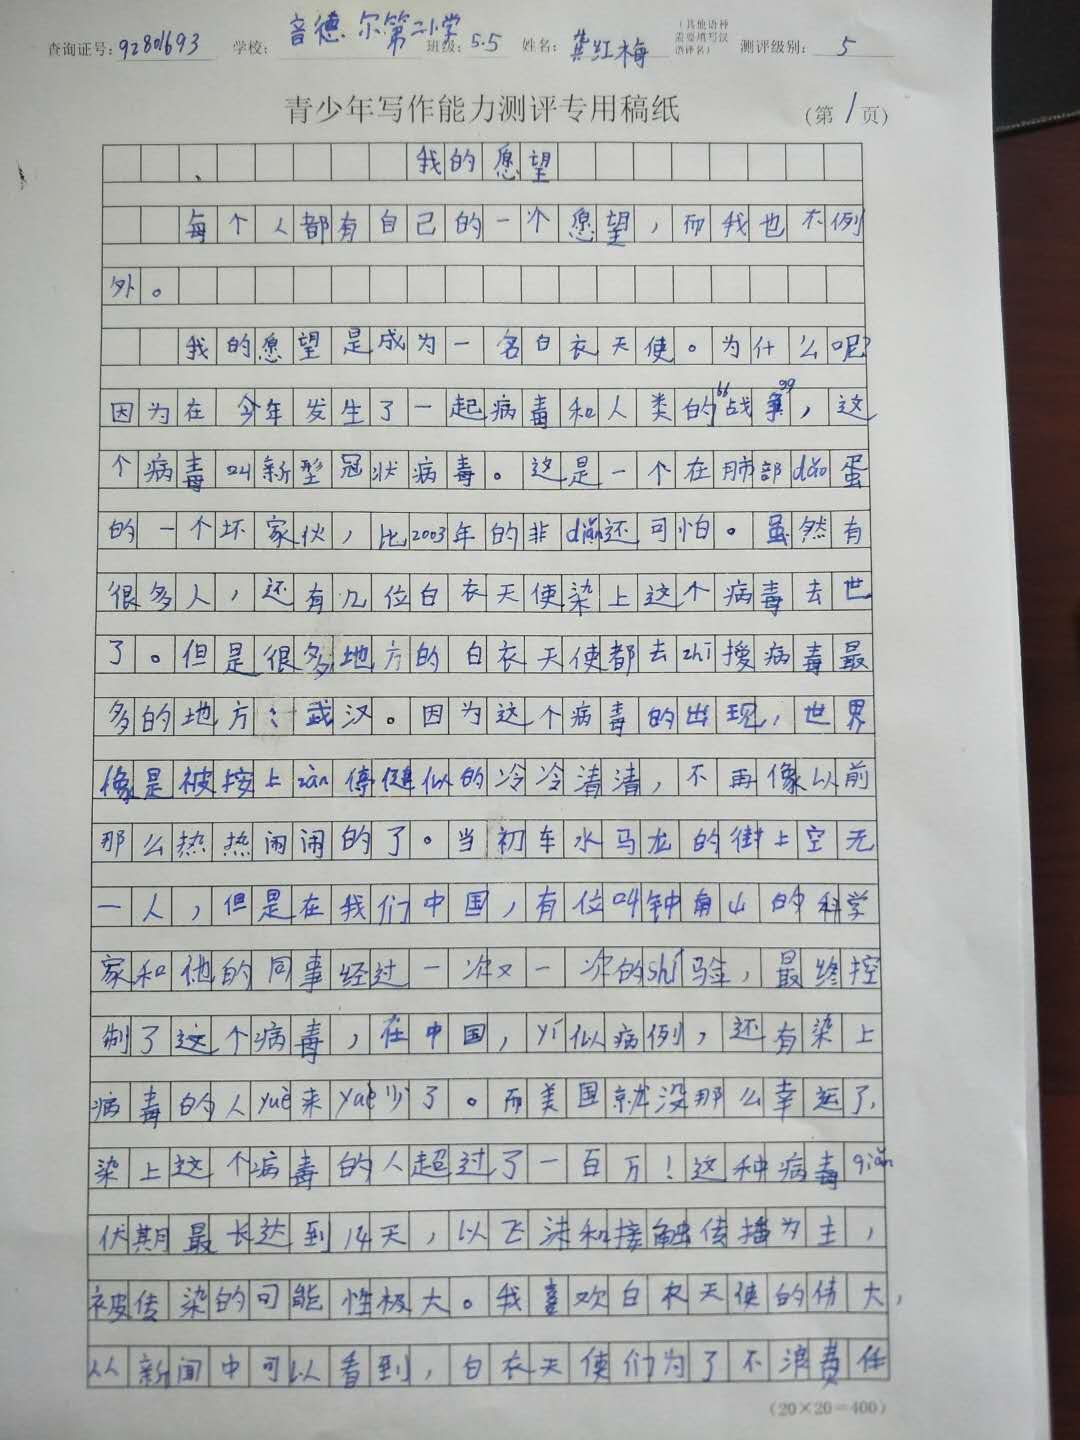 查询证号: 92801693 学校: 音德尔第二小学 班级: 5.5 姓名: 龚红梅 (其他语种需要填写汉语译名) 测评级别: 5
青少年写作能力测评专用稿纸 (第 1 页)
我的愿望
每个人都有自己的一个愿望，而我也不例
外。
我的愿望是成为一名白衣天使。为什么呢?
因为在今年发生了一起病毒和人类的“战争”，这
个病毒叫新型冠状病毒。这是一个在肺部dǎo蛋
的一个坏家伙，比2003年的非diǎn还可怕。虽然有
很多人，还有几位白衣天使染上这个病毒去世
了。但是很多地方的白衣天使都去zhī援病毒最
多的地方：武汉。因为这个病毒的出现，世界
像是被按上zàn停健似的冷冷清清，不再像以前
那么热热闹闹的了。当初车水马龙的街上空无
一人，但是在我们中国，有位叫钟南山的科学
家和他的同事经过一次又一次的shí验，最终控
制了这个病毒，在中国，yí似病例，还有染上
病毒的人yuè来yuè少了。而美国就没那么幸运了，
染上这个病毒的人超过了一百万！这种病毒qián
伏期最长达到14天，以飞沫和接触传播为主，
被传染的可能性极大。我喜欢白衣天使的伟大，
从新闻中可以看到，白衣天使们为了不浪费任
(20×20=400)